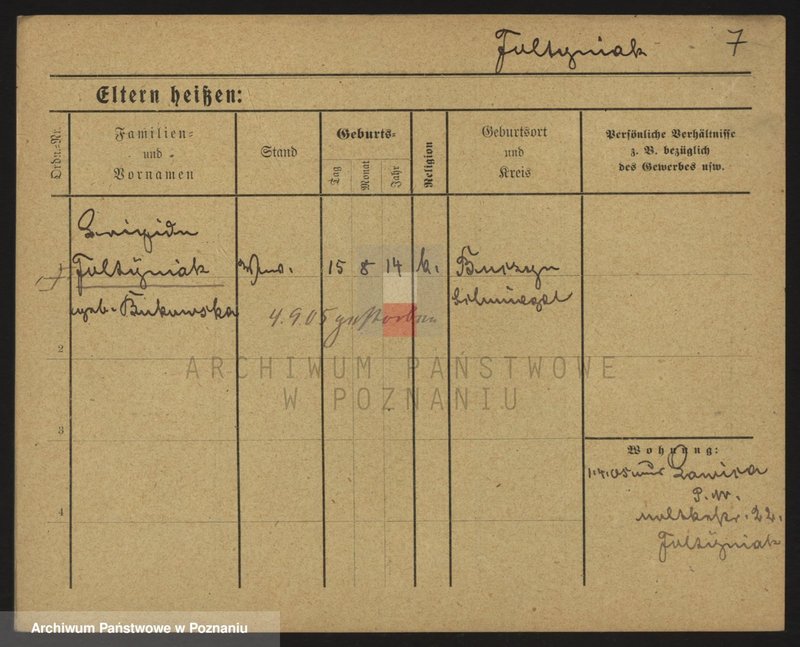 Foltyniak 7
Eltern heißen:
Ordn.-Nr.
Familien-
und
Vornamen
Stand
Geburts-
Tag
Monat
Jahr
Religion
Geburtsort
und
Kreis
Persönliche Verhältnisse
z. B. bezüglich
des Gewerbes usw.
Foltyniak
geb. Bukowska
Ww. 15 8 14 k.
Schmiegel
4.9.05 gestorben
2
3
4
Wohnung:
1.4.05 Lawica
P. W.
Moltkestr. 22.
Foltyniak
ARCHIWUM PAŃSTWOWE
W POZNANIU
Archiwum Państwowe w Poznaniu